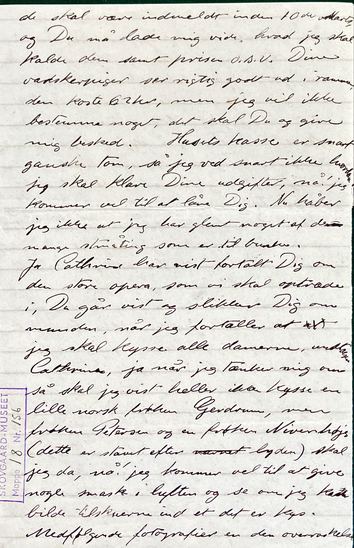 de skal være indmeldt inden 10de Marts
og Du må lade mig vide, hvad jeg skal
kalde dem samt prisen o.s.v. Dine
vadskerpiger ser rigtig godt ud i rammen,
den koste 12 kr, men jeg vil ikke
bestemme noget, det skal Du og give
mig besked. Husets kasse er snart
ganske tom, så jeg ved snart ikke hvordan
jeg skal klare Dine udgifter, nå! jeg
kommer vel til at låne Dig. Nu håber
jeg ikke at jeg har glemt noget af de
mange småting som er til
Ja Cathrine har vist fortalt Dig om
den store opera, som vi skal optræde
i, Du går vist og slikker Dig om
munden, når jeg fortæller at
jeg skal kysse alle damerne, undtagen
Cathrine, ja når jeg tænker mig om
så skal jeg vist heller ikke kysse en
lille norsk frøken Gerdrum, men
frøken Petersen og en frøken
(dette er stavet efter lyden) skal
jeg da, nå! jeg kommer vel til at give
nogle smask i luften og se om jeg kan
bilde tilskuerne ind at det er kys.
Medfølgende fotografier er den
SKOVGAARD-MUSEET
Mappe 8 Nr. 156